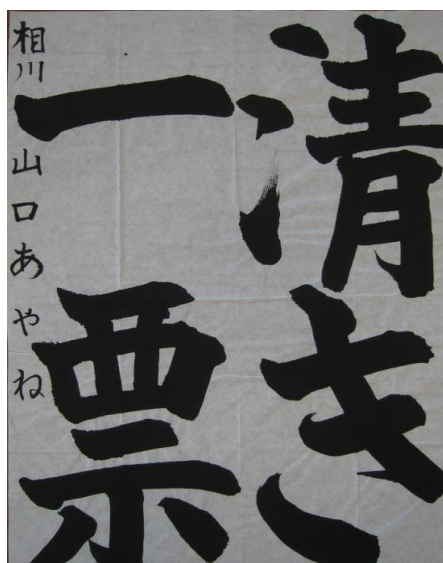 清き
一票
相川 山口あやね